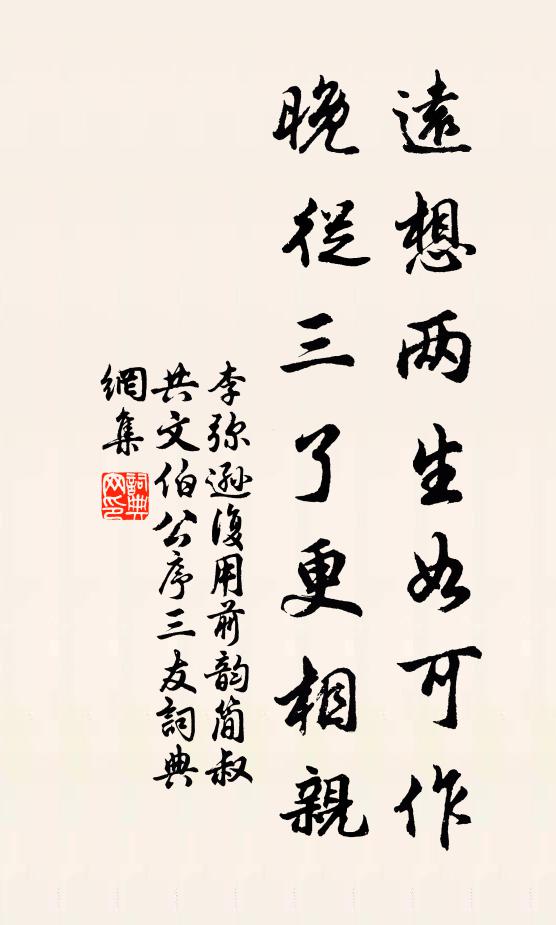 遠想两生如可作
晚從三了更相親
李弥遜復用前韵简叔
共文伯公序三友詞典
網集
詞典網印